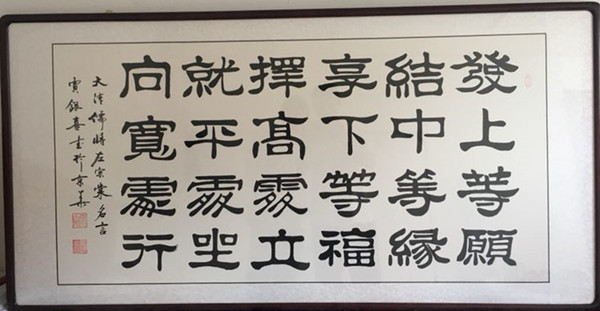 發上等願
結中等緣
享下等福
擇髙處立
就平處坐
向寬處行
大清儒將左宗棠名言
賈銀喜書於京華